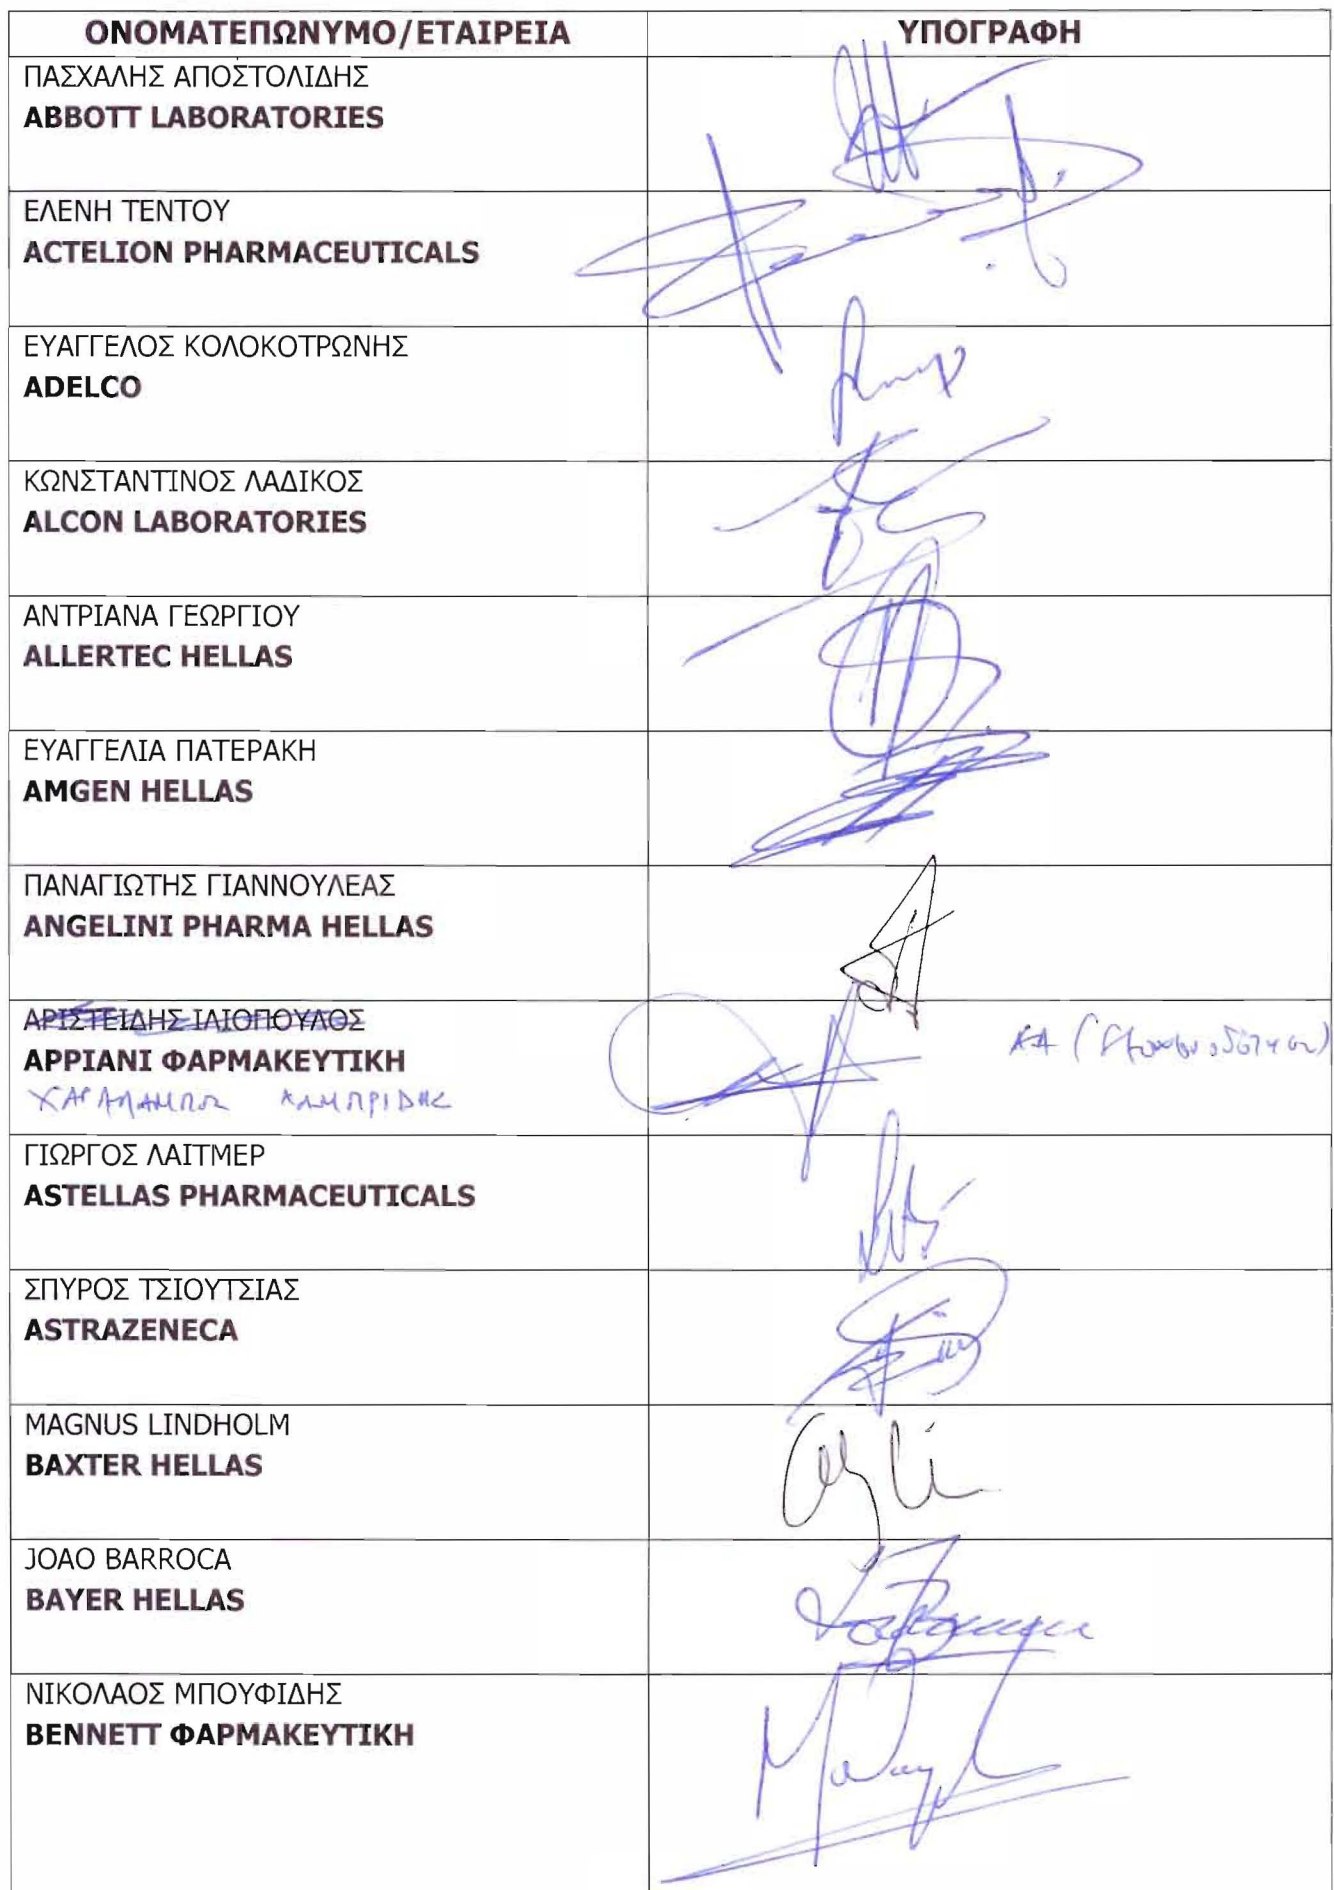 ΟΝΟΜΑΤΕΠΩΝΥΜΟ/ΕΤΑΙΡΕΙΑ ΥΠΟΓΡΑΦΗ
ΠΑΣΧΑΛΗΣ ΑΠΟΣΤΟΛΙΔΗΣ
ABBOTT LABORATORIES
ΕΛΕΝΗ ΤΕΝΤΟΥ
ACTELION PHARMACEUTICALS
ΕΥΑΓΓΕΛΟΣ ΚΟΛΟΚΟΤΡΩΝΗΣ
ADELCO
ΚΩΝΣΤΑΝΤΙΝΟΣ ΛΑΔΙΚΟΣ
ALCON LABORATORIES
ΑΝΤΡΙΑΝΑ ΓΕΩΡΓΙΟΥ
ALLERTEC HELLAS
ΕΥΑΓΓΕΛΙΑ ΠΑΤΕΡΑΚΗ
AMGEN HELLAS
ΠΑΝΑΓΙΩΤΗΣ ΓΙΑΝΝΟΥΛΕΑΣ
ANGELINI PHARMA HELLAS
ΑΡΙΣΤΕΙΔΗΣ ΙΛΙΟΠΟΥΛΟΣ
APPIANI ΦΑΡΜΑΚΕΥΤΙΚΗ
ΧΑΡΑΛΑΜΠΟΣ
ΓΙΩΡΓΟΣ ΛΑΙΤΜΕΡ
ASTELLAS PHARMACEUTICALS
ΣΠΥΡΟΣ ΤΣΙΟΥΤΣΙΑΣ
ASTRAZENECA
MAGNUS LINDHOLM
BAXTER HELLAS
JOAO BARROCA
BAYER HELLAS
ΝΙΚΟΛΑΟΣ ΜΠΟΥΦΙΔΗΣ
BENNETT ΦΑΡΜΑΚΕΥΤΙΚΗ